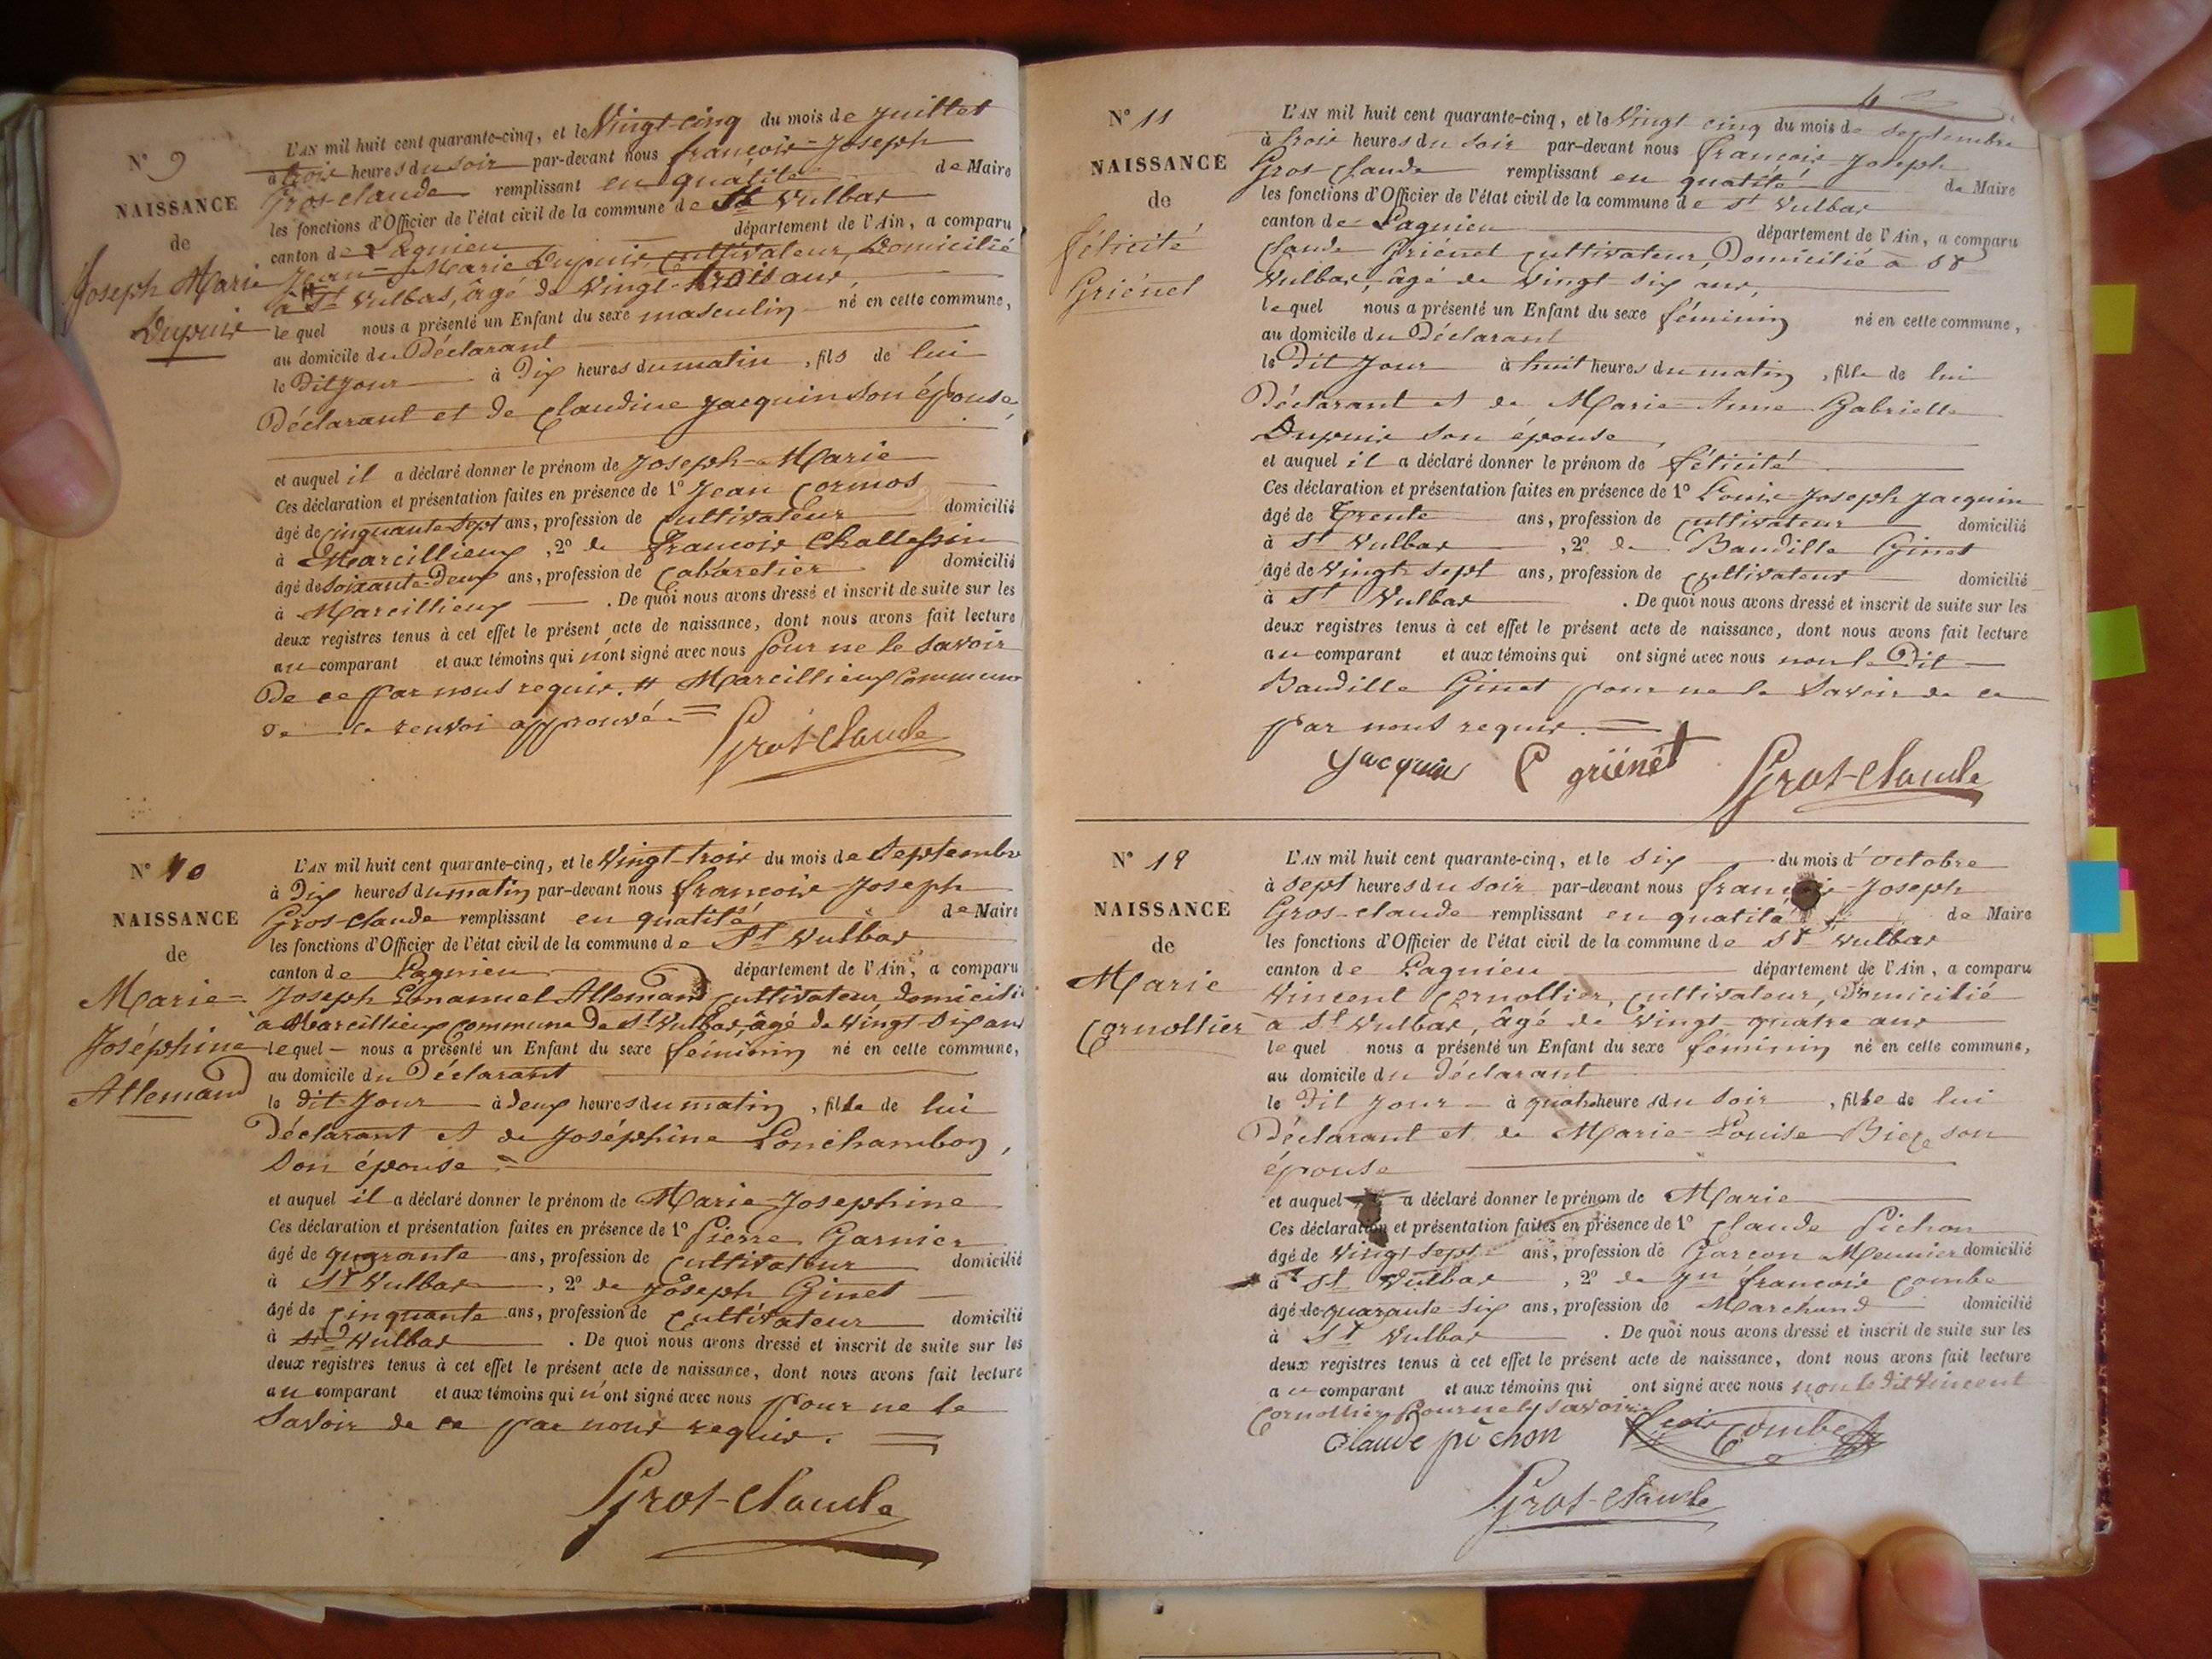 N° 9
NAISSANCE
de
Joseph Marie
Dupuis
L'AN mil huit cent quarante-cinq, et le Vingt-cinq du mois de Juillet
à trois heures du soir par-devant nous françois-Joseph
Gros-claude remplissant en qualité de Maire
les fonctions d'Officier de l'état civil de la commune de St Vulbas
canton de Lagnieu département de l'Ain, a comparu
Jean-Marie Dupuis, cultivateur, Domicilié
à St Vulbas, âgé de Vingt-trois ans,
le quel nous a présenté un Enfant du sexe masculin né en cette commune,
au domicile du Déclarant
le Dit Jour à Dix heures du matin, fils de lui
Déclarant et de Claudine Jacquin son épouse,
et auquel il a déclaré donner le prénom de Joseph-Marie
Ces déclaration et présentation faites en présence de 1° Jean Cormos
âgé de Cinquante-Sept ans, profession de Cultivateur domicilié
à Marcillieux, 2° de françois Challessin
âgé de Soixante-Deux ans, profession de Cabaretier domicilié
à Marcillieux. De quoi nous avons dressé et inscrit de suite sur les
deux registres tenus à cet effet le présent acte de naissance, dont nous avons fait lecture
au comparant et aux témoins qui n'ont signé avec nous pour ne le savoir
De ce par nous requis. # Marcillieux Commune
De renvoi approuvé =
Gros-claude
N° 10
NAISSANCE
de
Marie-
Joséphine
Allemand
L'AN mil huit cent quarante-cinq, et le Vingt-trois du mois de Septembre
à Dix heures du matin par-devant nous françois-Joseph
Gros-claude remplissant en qualité de Maire
les fonctions d'Officier de l'état civil de la commune de St Vulbas
canton de Lagnieu département de l'Ain, a comparu
Joseph Emanuel Allemand cultivateur Domicilié
à Marcillieux commune de St Vulbas, âgé de Vingt Six ans
le quel nous a présenté un Enfant du sexe féminin né en cette commune,
au domicile du Déclarant
le dit Jour à deux heures du matin, fille de lui
Déclarant et de Joséphine Lonchambon,
Son épouse
et auquel il a déclaré donner le prénom de Marie-Josephine
Ces déclaration et présentation faites en présence de 1° Pierre Garnier
âgé de quarante ans, profession de Cultivateur domicilié
à St Vulbas, 2° de Joseph Ginet
âgé de cinquante ans, profession de Cultivateur domicilié
à St Vulbas. De quoi nous avons dressé et inscrit de suite sur les
deux registres tenus à cet effet le présent acte de naissance, dont nous avons fait lecture
au comparant et aux témoins qui n'ont signé avec nous pour ne le
Savoir de ce par nous requis. =
Gros-claude
N° 11
NAISSANCE
de
félicité
Griénet
L'AN mil huit cent quarante-cinq, et le Vingt cinq du mois de Septembre
à trois heures du soir par-devant nous françois-Joseph
Gros-claude remplissant en qualité de Maire
les fonctions d'Officier de l'état civil de la commune de St Vulbas
canton de Lagnieu département de l'Ain, a comparu
Claude Griénet cultivateur, Domicilié à St
Vulbas, âgé de Vingt-Six ans,
le quel nous a présenté un Enfant du sexe féminin né en cette commune,
au domicile du Déclarant
le Dit Jour à huit heures du matin, fille de lui
Déclarant et de Marie-Anne Gabrielle
Dupuis son épouse,
et auquel il a déclaré donner le prénom de félicité
Ces déclaration et présentation faites en présence de 1° Louis-Joseph Jacquin
âgé de Trente ans, profession de cultivateur domicilié
à St Vulbas, 2° de Baudille Ginet
âgé de Vingt-Sept ans, profession de Cultivateur domicilié
à St Vulbas. De quoi nous avons dressé et inscrit de suite sur les
deux registres tenus à cet effet le présent acte de naissance, dont nous avons fait lecture
au comparant et aux témoins qui ont signé avec nous non le Dit
Baudille Ginet pour ne le Savoir de ce
par nous requis. =
Jacquin C griënet Gros-claude
N° 12
NAISSANCE
de
Marie
Cornollier
L'AN mil huit cent quarante-cinq, et le Six du mois d'octobre
à Sept heures du soir par-devant nous françois-Joseph
Gros-claude remplissant en qualité de Maire
les fonctions d'Officier de l'état civil de la commune de St Vulbas
canton de Lagnieu département de l'Ain, a comparu
Vincent Cornollier, Cultivateur, Domicilié
à St Vulbas, âgé de Vingt-quatre ans
le quel nous a présenté un Enfant du sexe féminin né en cette commune,
au domicile du déclarant
le Dit Jour à quatre heures du soir, fille de lui
Déclarant et de Marie-Louise Bieze son
épouse
et auquel a déclaré donner le prénom de Marie
Ces déclaration et présentation faites en présence de 1° Claude Pichon
âgé de Vingt Sept ans, profession de Garçon Meunier domicilié
à St Vulbas, 2° de Jn françois Combe
âgé de quarante-Six ans, profession de Marchand domicilié
à St Vulbas. De quoi nous avons dressé et inscrit de suite sur les
deux registres tenus à cet effet le présent acte de naissance, dont nous avons fait lecture
au comparant et aux témoins qui ont signé avec nous non le dit Vincent
Cornollier pour ne le savoir.
Claude pichon Combe
Gros-claude